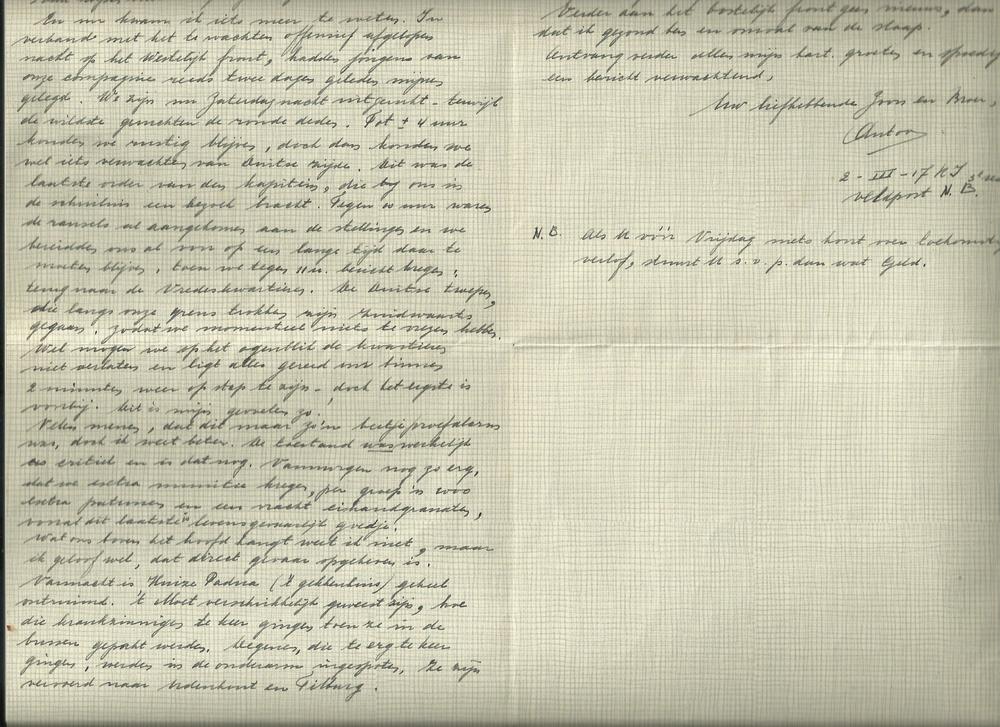 En nu kwam ik iets meer te weten. In
verband met het te wachten offensief afgelopen
nacht op het Westelijk front, hadden jongens van
onze compagnie reeds twee dagen geleden mijnen
gelegd. We zijn nu Zaterdagnacht uitgerukt - terwijl
de wildste geruchten de ronde deden. Tot ± 4 uur
konden we rustig blijven, doch dan konden we
wel iets verwachten van Duitse zijde. Dit was de
laatste order van den kapitein, die bij ons in
de schuilnis een bezoek bracht. Tegen uur waren
de ransels al aangekomen aan de stellingen en we
bereidden ons al voor op een lange tijd daar te
moeten blijven, toen we tegen 11 u. bericht kregen:
terug naar de Vredeskwartieren. De Duitse troepen,
die langs onze grens trokken zijn Zuidwaarts
gegaan, zodat we momenteel niets te vrezen hebben.
Wel mogen we op het ogenblik de kwartieren
niet verlaten en ligt alles gereed om binnen
2 minuten weer op stap te zijn - doch het ergste is
voorbij. Dit is mijn gevoelen zo.
Velen menen, dat dit maar zo'n beetje proefalarm
was, doch ik weet beter. De toestand was werkelijk
critiek en is dat nog. Vanmorgen nog zo erg,
dat we extra munitie kregen, per groep 'n 2000
extra patronen en een vracht eihandgranaten,
vooral dit laatste 'n levensgevaarlijk goedje.
Wat ons boven het hoofd hangt weet ik niet, maar
ik geloof wel, dat direct gevaar opgeheven is.
Vannacht is Huize Padua ('t gekkenhuis) geheel
ontruimd. 't Moet verschrikkelijk geweest zijn, hoe
die krankzinnigen te keer gingen toen ze in de
bussen gepakt werden. Degenen, die te erg te keer
gingen, werden in de onderarm ingespoten. Ze zijn
vervoerd naar Udenhout en Tilburg.
Verder aan het oostelijk front geen nieuws, dan
dat ik gezond ben en omval van de slaap.
Ontvang verder allen mijn hart. groeten en spoedig
een bericht verwachtend,
Uw liefhebbende Zoon en Broer,
Antoon
2 - III - 17 R I
veldpost N. B.
N. B. Als U vóór Vrijdag niets hoort over toekomstig
verlof, stuurt U s. v. p. dan wat Geld.